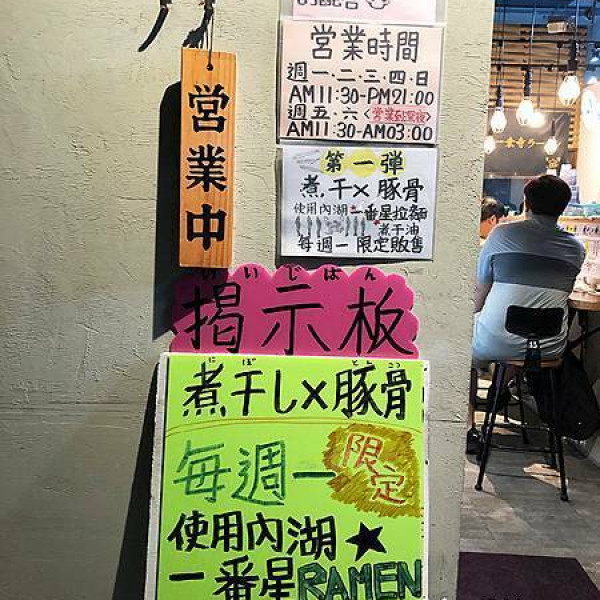 営業中
営業時間
週一.二.三.四.日
AM11:30-PM21:00
週五.六<営業到深夜>
AM11:30-AM03:00
第一彈
煮.干×豚骨
使用內湖★一番星拉麵
煮干油
每週一限定販售
けいじばん
掲示板
にぼ とんこつ
煮干し×豚骨
每週一限定
使用內湖★
一番星RAMEN